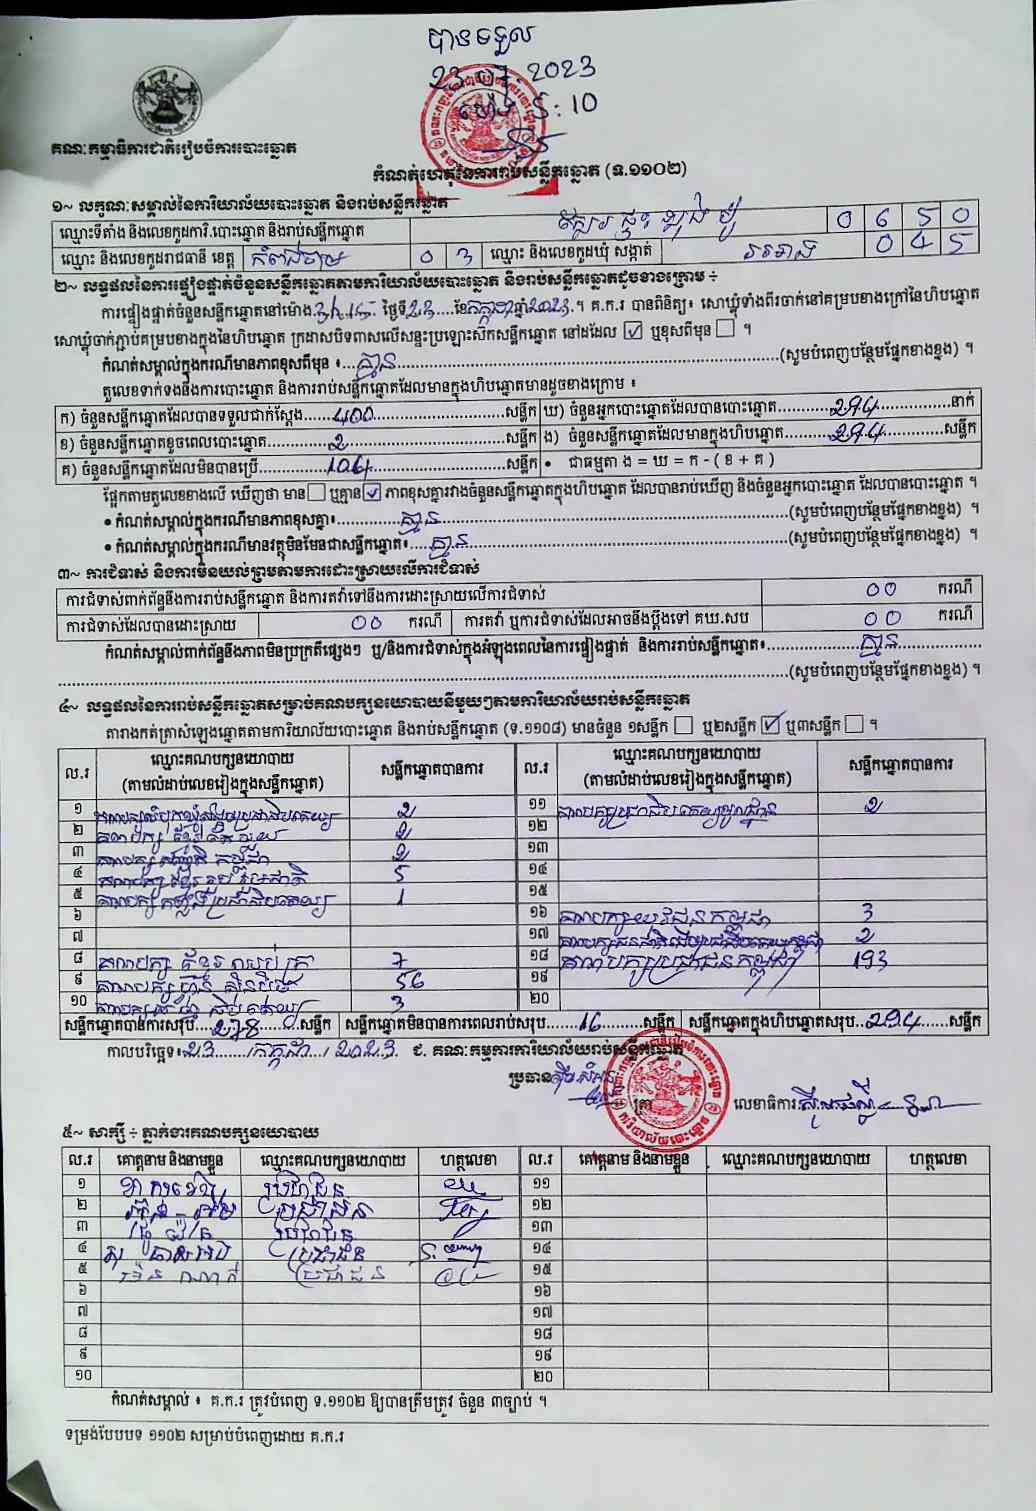 បានទទួល
23.07.2023
ម៉ោង 5:10
គណៈកម្មាធិការជាតិរៀបចំការបោះឆ្នោត
កំណត់ហេតុនៃការរាប់សន្លឹកឆ្នោត (ទ.១១០២)
១~ លក្ខណៈសម្គាល់នៃការិយាល័យបោះឆ្នោត និងរាប់សន្លឹកឆ្នោត
ឈ្មោះទីតាំង និងលេខកូដការិ.បោះឆ្នោត និងរាប់សន្លឹកឆ្នោត 0 6 5 0
ឈ្មោះ និងលេខកូដរាជធានី ខេត្ត កំពង់ចាម 0 3 ឈ្មោះ និងលេខកូដឃុំ សង្កាត់ 0 4 5
២~ លទ្ធផលនៃការផ្ទៀងផ្ទាត់ចំនួនសន្លឹកឆ្នោតតាមការិយាល័យបោះឆ្នោត និងរាប់សន្លឹកឆ្នោតដូចខាងក្រោម ÷
ការផ្ទៀងផ្ទាត់ចំនួនសន្លឹកឆ្នោតនៅម៉ោង 3h15 ថ្ងៃទី 23 ខែ កក្កដា ឆ្នាំ 2023 ។ គ.ក.រ បានពិនិត្យ៖ សោឃ្លុំទាំងពីរចាក់នៅគម្របខាងក្រៅនៃហិបឆ្នោត
សោឃ្លុំចាក់ភ្ជាប់គម្របខាងក្នុងនៃហិបឆ្នោត ក្រដាសបិទពាសលើសន្ទះប្រឡោះស៊កសន្លឹកឆ្នោត នៅដដែល ☑ ឬខុសពីមុន ☐ ។
កំណត់សម្គាល់ក្នុងករណីមានភាពខុសពីមុន ៖ គ្មាន (សូមបំពេញបន្ថែមផ្នែកខាងខ្នង) ។
តួលេខទាក់ទងនឹងការបោះឆ្នោត និងការរាប់សន្លឹកឆ្នោតដែលមានក្នុងហិបឆ្នោតមានដូចខាងក្រោម ៖
ក) ចំនួនសន្លឹកឆ្នោតដែលបានទទួលជាក់ស្តែង 400 សន្លឹក ឃ) ចំនួនអ្នកបោះឆ្នោតដែលបានបោះឆ្នោត 294 នាក់
ខ) ចំនួនសន្លឹកឆ្នោតខូចពេលបោះឆ្នោត 2 សន្លឹក ង) ចំនួនសន្លឹកឆ្នោតដែលមានក្នុងហិបឆ្នោត 294 សន្លឹក
គ) ចំនួនសន្លឹកឆ្នោតដែលមិនបានប្រើ 104 សន្លឹក • ជាធម្មតា ង = ឃ = ក - ( ខ + គ )
ផ្អែកតាមតួលេខខាងលើ ឃើញថា មាន ☐ ឬគ្មាន ☑ ភាពខុសគ្នារវាងចំនួនសន្លឹកឆ្នោតក្នុងហិបឆ្នោត ដែលបានរាប់ឃើញ និងចំនួនអ្នកបោះឆ្នោត ដែលបានបោះឆ្នោត ។
• កំណត់សម្គាល់ក្នុងករណីមានភាពខុសគ្នា៖ គ្មាន (សូមបំពេញបន្ថែមផ្នែកខាងខ្នង) ។
• កំណត់សម្គាល់ក្នុងករណីមានវត្ថុមិនមែនជាសន្លឹកឆ្នោត៖ គ្មាន (សូមបំពេញបន្ថែមផ្នែកខាងខ្នង) ។
៣~ ការជំទាស់ និងការមិនយល់ព្រមតាមការដោះស្រាយលើការជំទាស់
ការជំទាស់ពាក់ព័ន្ធនឹងការរាប់សន្លឹកឆ្នោត និងការតវ៉ាទៅនឹងការដោះស្រាយលើការជំទាស់ 00 ករណី
ការជំទាស់ដែលបានដោះស្រាយ 00 ករណី ការតវ៉ា ឬការជំទាស់ដែលអាចនឹងប្តឹងទៅ គឃ.សប 00 ករណី
កំណត់សម្គាល់ពាក់ព័ន្ធនឹងភាពមិនប្រក្រតីផ្សេងៗ ឬ/និងការជំទាស់ក្នុងអំឡុងពេលនៃការផ្ទៀងផ្ទាត់ និងការរាប់សន្លឹកឆ្នោត៖ គ្មាន
(សូមបំពេញបន្ថែមផ្នែកខាងខ្នង) ។
៤~ លទ្ធផលនៃការរាប់សន្លឹកឆ្នោតសម្រាប់គណបក្សនយោបាយនីមួយៗតាមការិយាល័យរាប់សន្លឹកឆ្នោត
តារាងកត់ត្រាសំឡេងឆ្នោតតាមការិយាល័យបោះឆ្នោត និងរាប់សន្លឹកឆ្នោត (ទ.១១០៨) មានចំនួន ១សន្លឹក ☐ ឬ២សន្លឹក ☑ ឬ៣សន្លឹក ☐ ។
ល.រ ឈ្មោះគណបក្សនយោបាយ (តាមលំដាប់លេខរៀងក្នុងសន្លឹកឆ្នោត) សន្លឹកឆ្នោតបានការ ល.រ ឈ្មោះគណបក្សនយោបាយ (តាមលំដាប់លេខរៀងក្នុងសន្លឹកឆ្នោត) សន្លឹកឆ្នោតបានការ
១ 2 ១១ 2
២ គណបក្ស 2 ១២
៣ គណបក្ស កម្ពុជា 2 ១៣
៤ 5 ១៤
៥ គណបក្ស កម្លាំងប្រជាធិបតេយ្យ 1 ១៥
៦ ១៦ គណបក្សយុវជនកម្ពុជា 3
៧ ១៧ 2
៨ គណបក្ស 7 ១៨ គណបក្សប្រជាជនកម្ពុជា 193
៩ គណបក្ស ហ៊្វុនស៊ិនប៉ិច 56 ១៩
១០ 3 ២០
សន្លឹកឆ្នោតបានការសរុប 278 សន្លឹក សន្លឹកឆ្នោតមិនបានការពេលរាប់សរុប 16 សន្លឹក សន្លឹកឆ្នោតក្នុងហិបឆ្នោតសរុប 294 សន្លឹក
កាលបរិច្ឆេទ៖ 23 / កក្កដា / 2023. ជ. គណៈកម្មការការិយាល័យរាប់សន្លឹកឆ្នោត
ប្រធាន ត្រា លេខាធិការ
៥~ សាក្សី ÷ ភ្នាក់ងារគណបក្សនយោបាយ
ល.រ គោត្តនាម និងនាមខ្លួន ឈ្មោះគណបក្សនយោបាយ ហត្ថលេខា ល.រ គោត្តនាម និងនាមខ្លួន ឈ្មោះគណបក្សនយោបាយ ហត្ថលេខា
១ ប្រជាជន ១១
២ ប្រជាជន ១២
៣ ប្រជាជន ១៣
៤ ប្រជាជន ១៤
៥ ប្រជាជន ១៥
៦ ១៦
៧ ១៧
៨ ១៨
៩ ១៩
១០ ២០
កំណត់សម្គាល់ ៖ គ.ក.រ ត្រូវបំពេញ ទ.១១០២ ឱ្យបានត្រឹមត្រូវ ចំនួន ៣ច្បាប់ ។
ទម្រង់បែបបទ ១១០២ សម្រាប់បំពេញដោយ គ.ក.រ